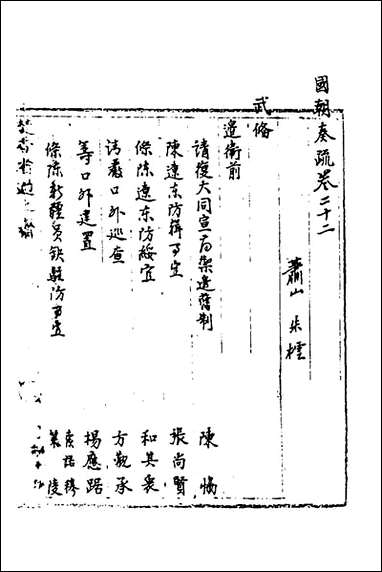 國朝奏疏卷二十二
蕭山 朱橒
武備
邊衛前
請復大同宣府禦邊舊制 陳惕
陳遼東防緝事宜 張尚賢
條陳遼東防綏宜 和其衷
請嚴口外巡查 方觀承
等口外建置 楊應琚
條陳新疆員缺駐防事宜 索諾穆策凌